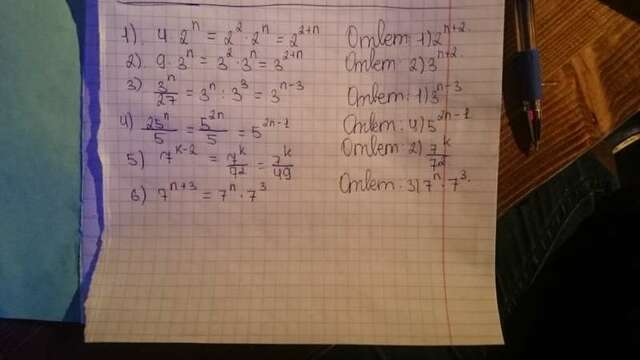 1) 4 · 2ⁿ = 2² · 2ⁿ = 2²⁺ⁿ Ответ: 1) 2ⁿ⁺²
2) 9 · 3ⁿ = 3² · 3ⁿ = 3²⁺ⁿ Ответ: 2) 3ⁿ⁺²
3) 3ⁿ/27 = 3ⁿ : 3³ = 3ⁿ⁻³ Ответ: 1) 3ⁿ⁻³
4) 25ⁿ/5 = 5²ⁿ/5 = 5²ⁿ⁻¹ Ответ: 4) 5²ⁿ⁻¹
5) 7ᵏ⁻² = 7ᵏ/7² = 7ᵏ/49 Ответ: 2) 7ᵏ/7²
6) 7ⁿ⁺³ = 7ⁿ · 7³ Ответ: 3) 7ⁿ · 7³.